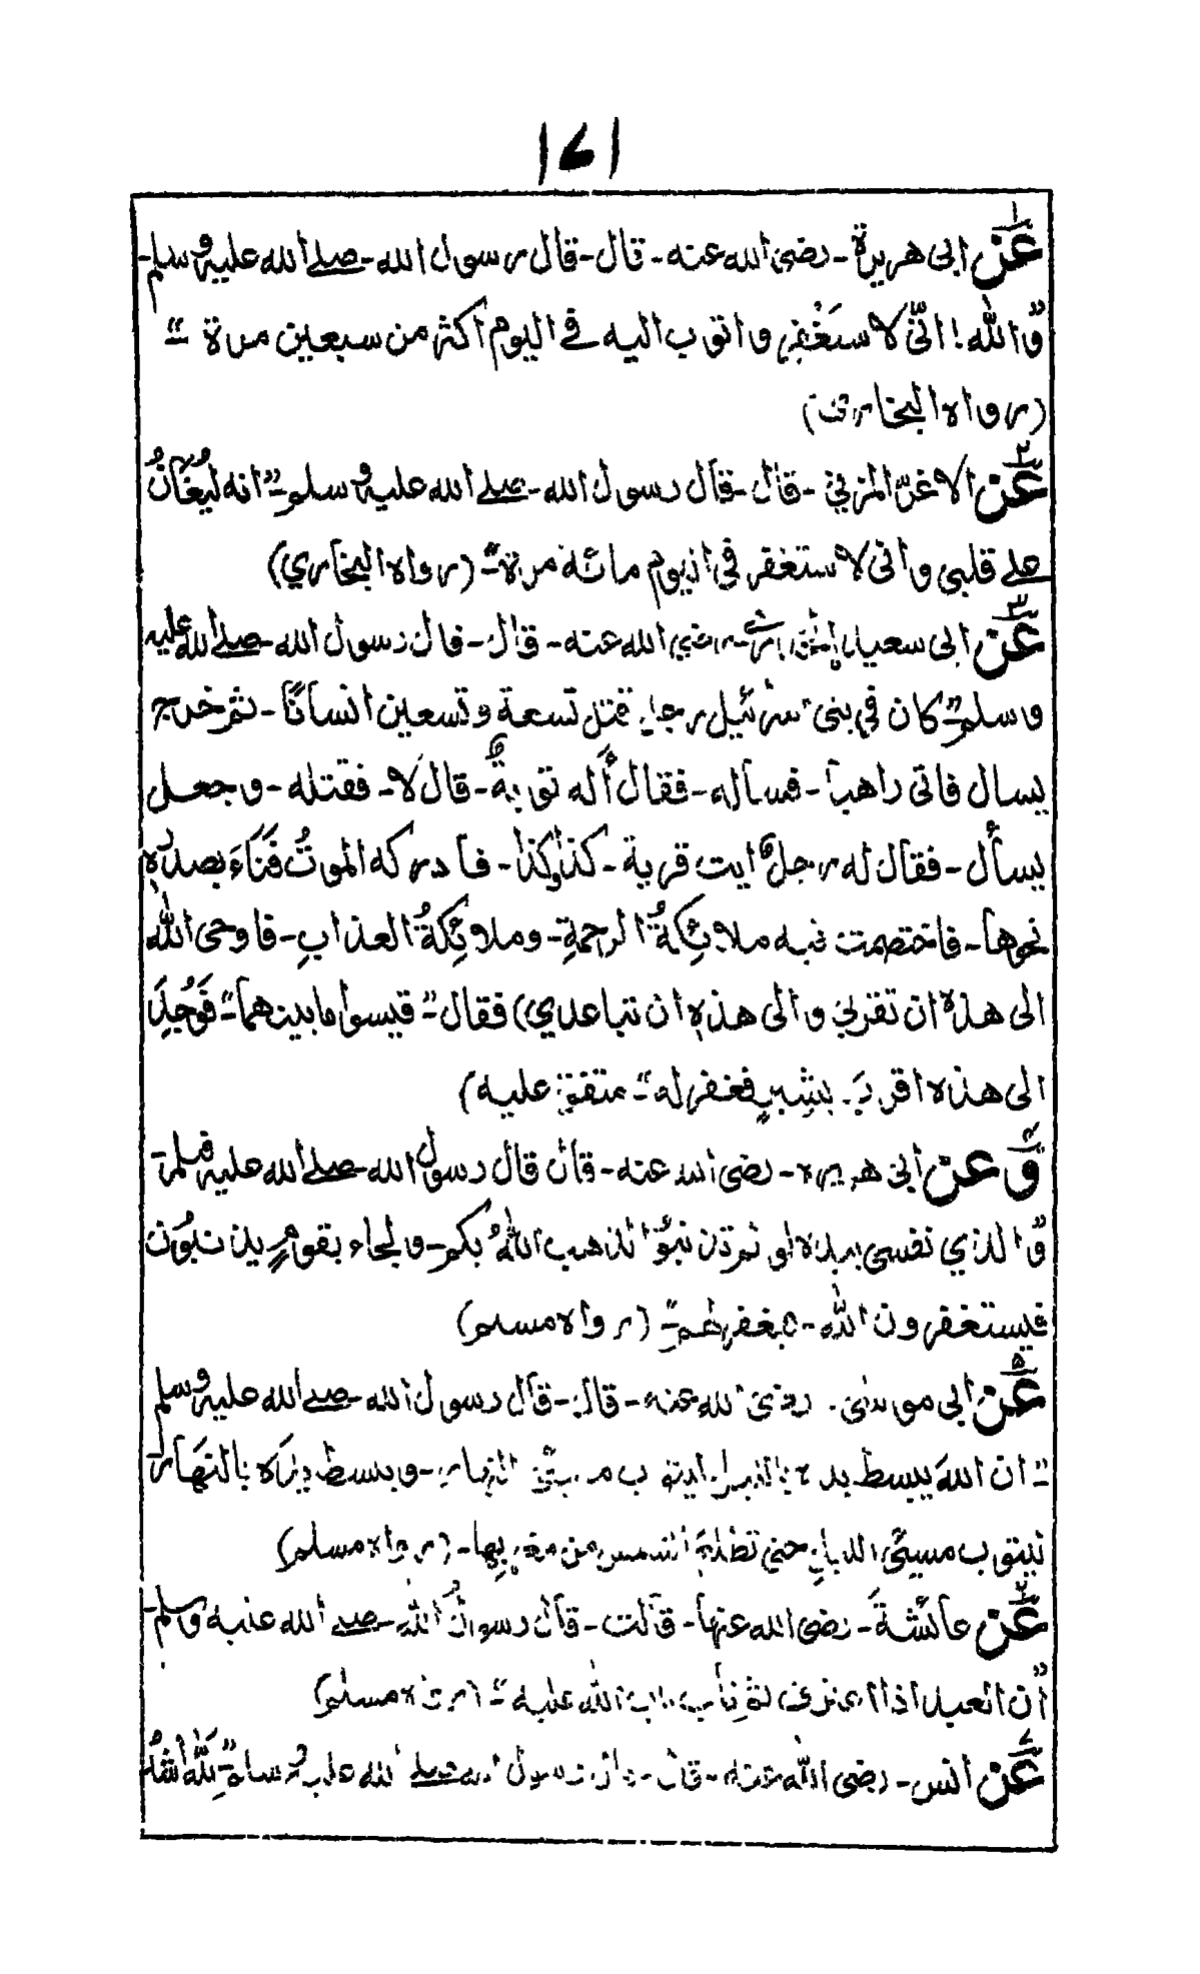 ۱۷۱
۱ عَنْ ابی ھریرۃ - رضی اللہ عنه - قال - قال رسول اللہ - صلے اللہ علیہ وسلم -
"وَاللّٰہ! انّی لاستَغْفِر واتوب الیه فے الیوم اکثر من سبعین مرۃ" -
(رواہ البخاری)
۲ عَنْ الاغرّ المزنی - قال - قال رسول اللہ - صلے اللہ علیہ وسلم - "انه لیُغَانُ
علے قلبی وانی لاستغفر فی الیوم مائۃ مرۃ" - (رواہ البخاری)
۳ عَنْ ابی سعید الخدری - رضی اللہ عنه - قال - قال رسول اللہ - صلے اللہ علیه
وسلم - "کان فی بنی اسرائیل رجل قتل تسعة وتسعین انسانًا - ثم خرج
یسال فاتی راھبا - فسأله - فقال أله توبةٌ - قال لا - فقتله - وجعل
یسأل - فقال له رجلٌ ایت قریة - کذا وکذا - فادرکه الموتُ فَنَاءَ بصدرہ
نحوھا - فاختصمت فیه ملائِکةُ الرحمةِ - وملائِکةُ العذابِ - فاوحی اللّٰہ
الی ھذہ ان تقربی والی ھذہ ان تباعدی) فقال - "قیسوا ما بینھما" - فَوُجِدَ
الی ھذہ اقرب بشِبرٍ فغفر له" - متفق علیه)
۴ وَعَنْ ابی ھریرہ - رضی اللہ عنه - قال قال رسول اللہ صلے اللہ علیه وسلم -
"وَالذی نفسی بیدہ لو لم تذنبوْا لذھب اللّٰہُ بکم - ولجاء بقومٍ یذنبُون
فیستغفرون اللّٰہ - فیغفر لھم" - (رواہ مسلم)
۵ عَنْ ابی موسٰی - رضی اللہ عنه - قال - قال رسول اللہ - صلے اللہ علیه وسلم
- "ان اللّٰہَ یبسط یدہ باللیل لیتوب مسیئی النھار - ویبسط یدَہ بالنھَار
لیتوب مسیئی اللیل حتی تطلعَ الشمس من مغربِھا - (رواہ مسلم)
۶ عَنْ عائشةَ - رضی اللہ عنھا - قالت - قال رسولُ اللّٰہِ - صلے اللہ علیه وسلم -
"ان العبد اذا اعترف ثم تاب تاب اللّٰہ علیه" - (رواہ مسلم)
۷ عَنْ انس - رضی اللّٰہ عنه - قال - قال رسول اللہ صلے اللہ علیه وسلم - "لَلّٰہُ اشدُّ